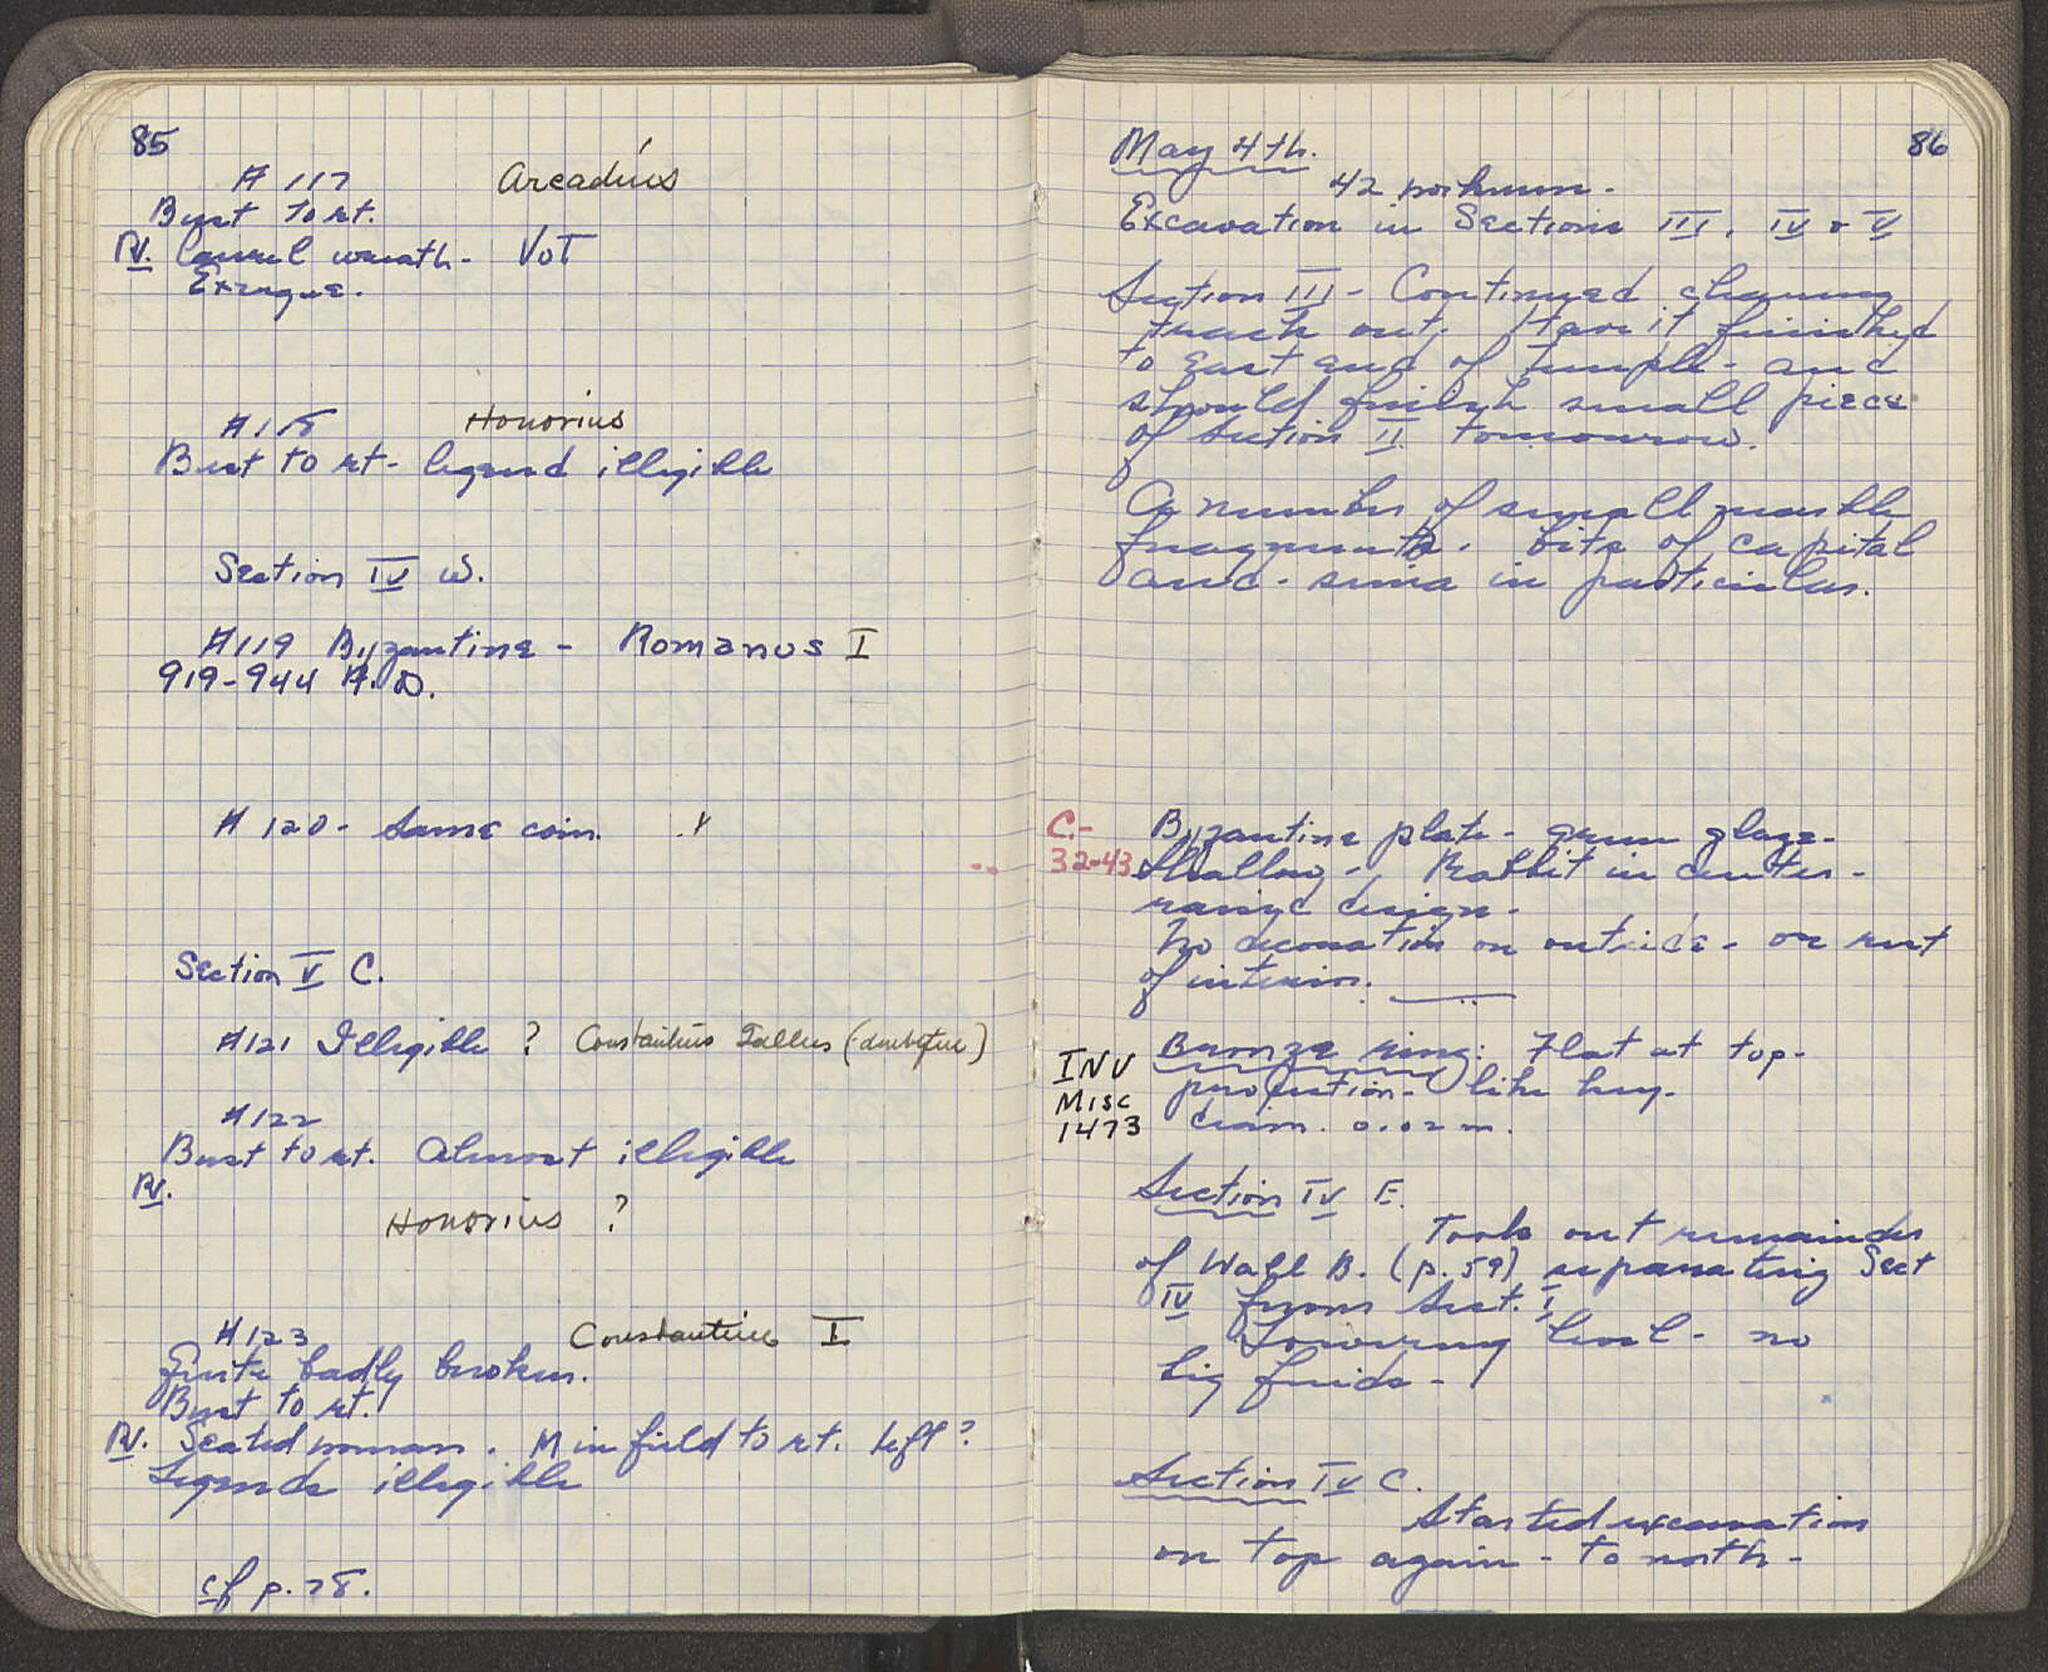 85
#117 Arcadius
Bust to rt.
RV. Laurel wreath - VOT
Exergue.
#118 Honorius
Bust to rt - legend illegible
Section IV W.
#119 Byzantine - Romanus I
919-944 A.D.
#120 - Same coin.
Section V C.
#121 Illegible ? Constantius Gallus (doubtful)
#122
Bust to rt. Almost illegible
RV.
Honorius ?
#123 Constantius II
Quite badly broken.
Bust to rt.
RV. Seated woman. M in field to rt. left?
Legends illegible
cf p. 78.
86
May 4th.
42 workmen.
Excavation in Sections III, IV & V
Section III - Continued cleaning
trench out. Have it finished
to east end of temple - and
should finish small piece
of Section II tomorrow.
A number of small marble
fragments. bits of capital
and sima in particular.
C.-
32-43
Byzantine plate - green glaze -
Shallow - Rabbit in center -
raised design -
No decoration on outside - or rest
of interior.
INV
Misc
1473
Bronze ring: Flat at top -
projection - like key.
diam. 0.02 m.
Section IV E.
Took out remainder
of Wall B. (p. 59) separating Sect
IV from Sect. I
Lowering level - no
big finds -
Section IV C.
Started excavation
on top again - to north -